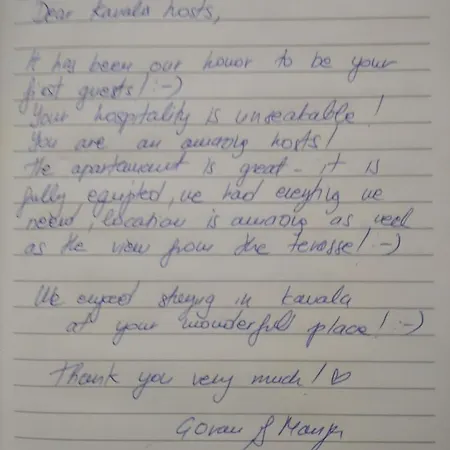 Dear Kavala hosts,
It has been our honor to be your
first guests! :-)
Your hospitality is unseakable!
You are an amazing hosts!
The apartamount is great - it is
fully equipted, we had everything we
need, location is amazing as well
as the view from the terosse! :-)
We enjoed staying in Kavala
at your wonderfull place! :-)
Thank you very much! ♡
Goran &